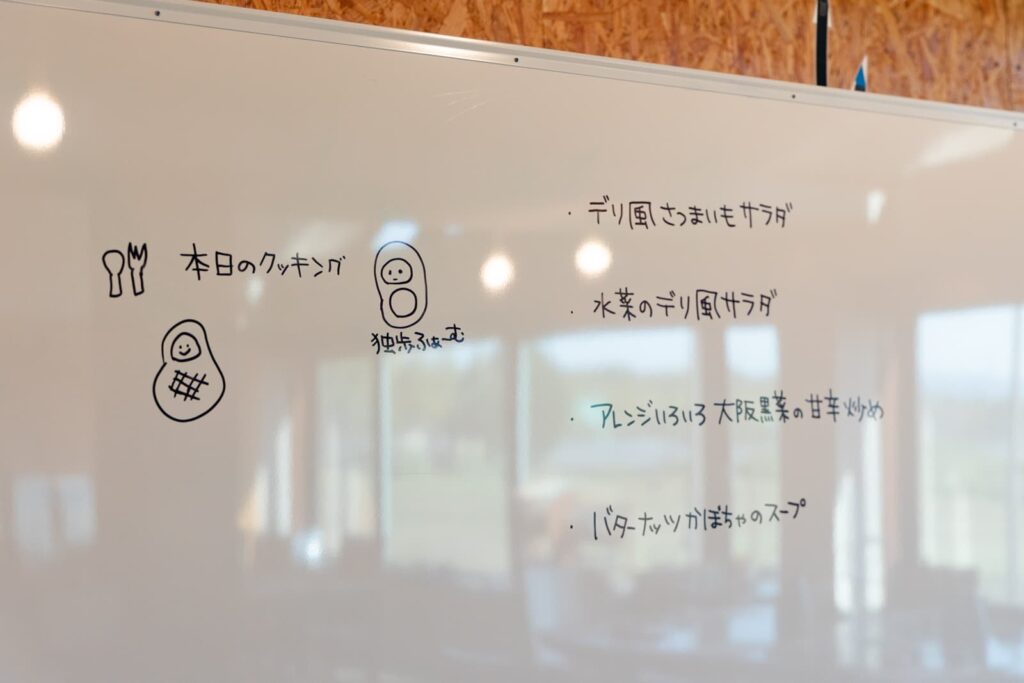 本日のクッキング
独歩ふぁーむ
・デリ風さつまいもサラダ
・水菜のデリ風サラダ
・アレンジいろいろ 大阪黒菜の甘辛炒め
・バターナッツかぼちゃのスープ